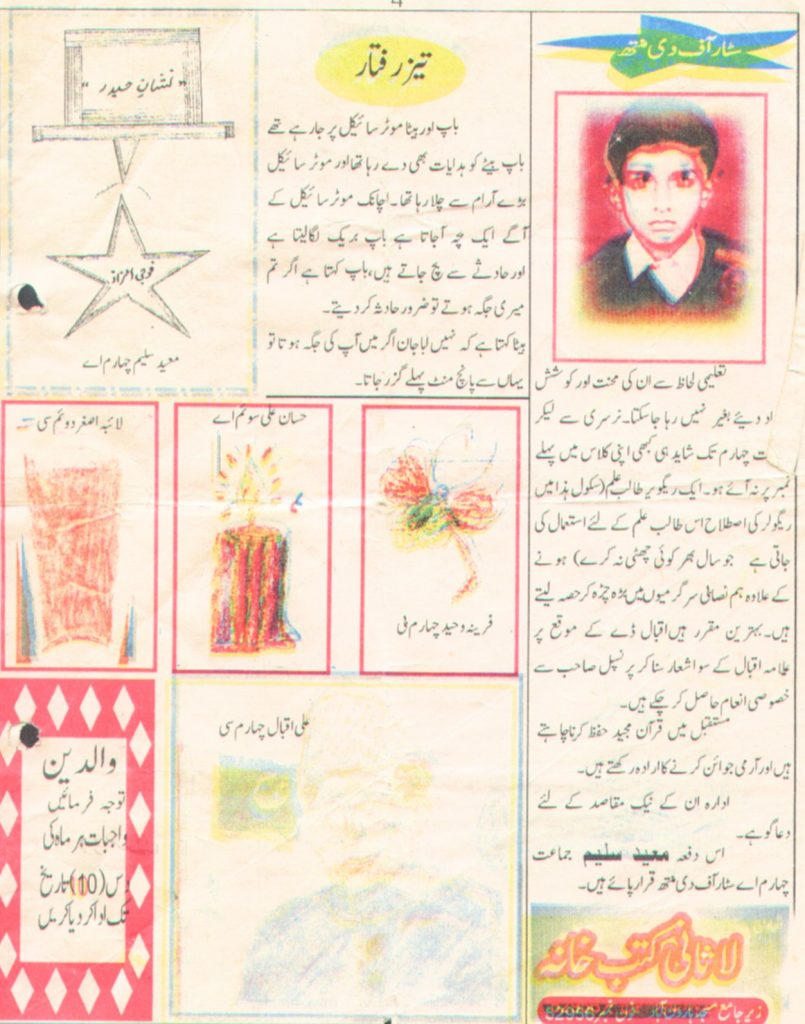 4
سٹار آف دی منتھ
تعلیمی لحاظ سے ان کی محنت اور کوشش
داد دیئے بغیر نہیں رہا جا سکتا۔ نرسری سے لیکر
چہارم تک شاید ہی کبھی اپنی کلاس میں پہلے
نمبر پر نہ آئے ہو۔ ایک ریگولر طالب علم (سکول ہذا میں
ریگولر کی اصطلاح اس طالب علم کے لئے استعمال کی
جاتی ہے جو سال بھر کوئی چھٹی نہ کرے) ہونے
کے علاوہ ہم نصابی سرگرمیوں میں بڑھ چڑھ کر حصہ لیتے
ہیں۔ بہترین مقرر ہیں اقبال ڈے کے موقع پر
علامہ اقبال کے سو اشعار سنا کر پرنسپل صاحب سے
خصوصی انعام حاصل کر چکے ہیں۔
مستقبل میں قرآن مجید حفظ کرنا چاہتے
ہیں اور آرمی جوائن کرنے کا ارادہ رکھتے ہیں۔
ادارہ ان کے نیک مقاصد کے لئے
دعا گو ہے۔
اس دفعہ معید سلیم جماعت
چہارم اے سٹار آف دی منتھ قرار پائے ہیں۔
لاثانی کتب خانہ
زیر جامع مسجد
تیز رفتار
باپ اور بیٹا موٹر سائیکل پر جا رہے تھے
باپ بیٹے کو ہدایات بھی دے رہا تھا اور موٹر سائیکل
بڑے آرام سے چلا رہا تھا۔ اچانک موٹر سائیکل کے
آگے ایک بچہ آ جاتا ہے باپ بریک لگا لیتا ہے
اور حادثے سے بچ جاتے ہیں، باپ کہتا ہے اگر تم
میری جگہ ہوتے تو ضرور حادثہ کر دیتے۔
بیٹا کہتا ہے کہ نہیں ابا جان اگر میں آپ کی جگہ ہوتا تو
یہاں سے پانچ منٹ پہلے گزر جاتا۔
"نشانِ حیدر"
فوجی اعزاز
معید سلیم چہارم اے
فرینہ وحید چہارم بی
حسان علی سوئم اے
لائبہ اصغر دوئم سی
علی اقبال چہارم سی
والدین
توجہ فرمائیں
واجبات ہر ماہ کی
دس (10) تاریخ
تک ادا کر دیا کریں